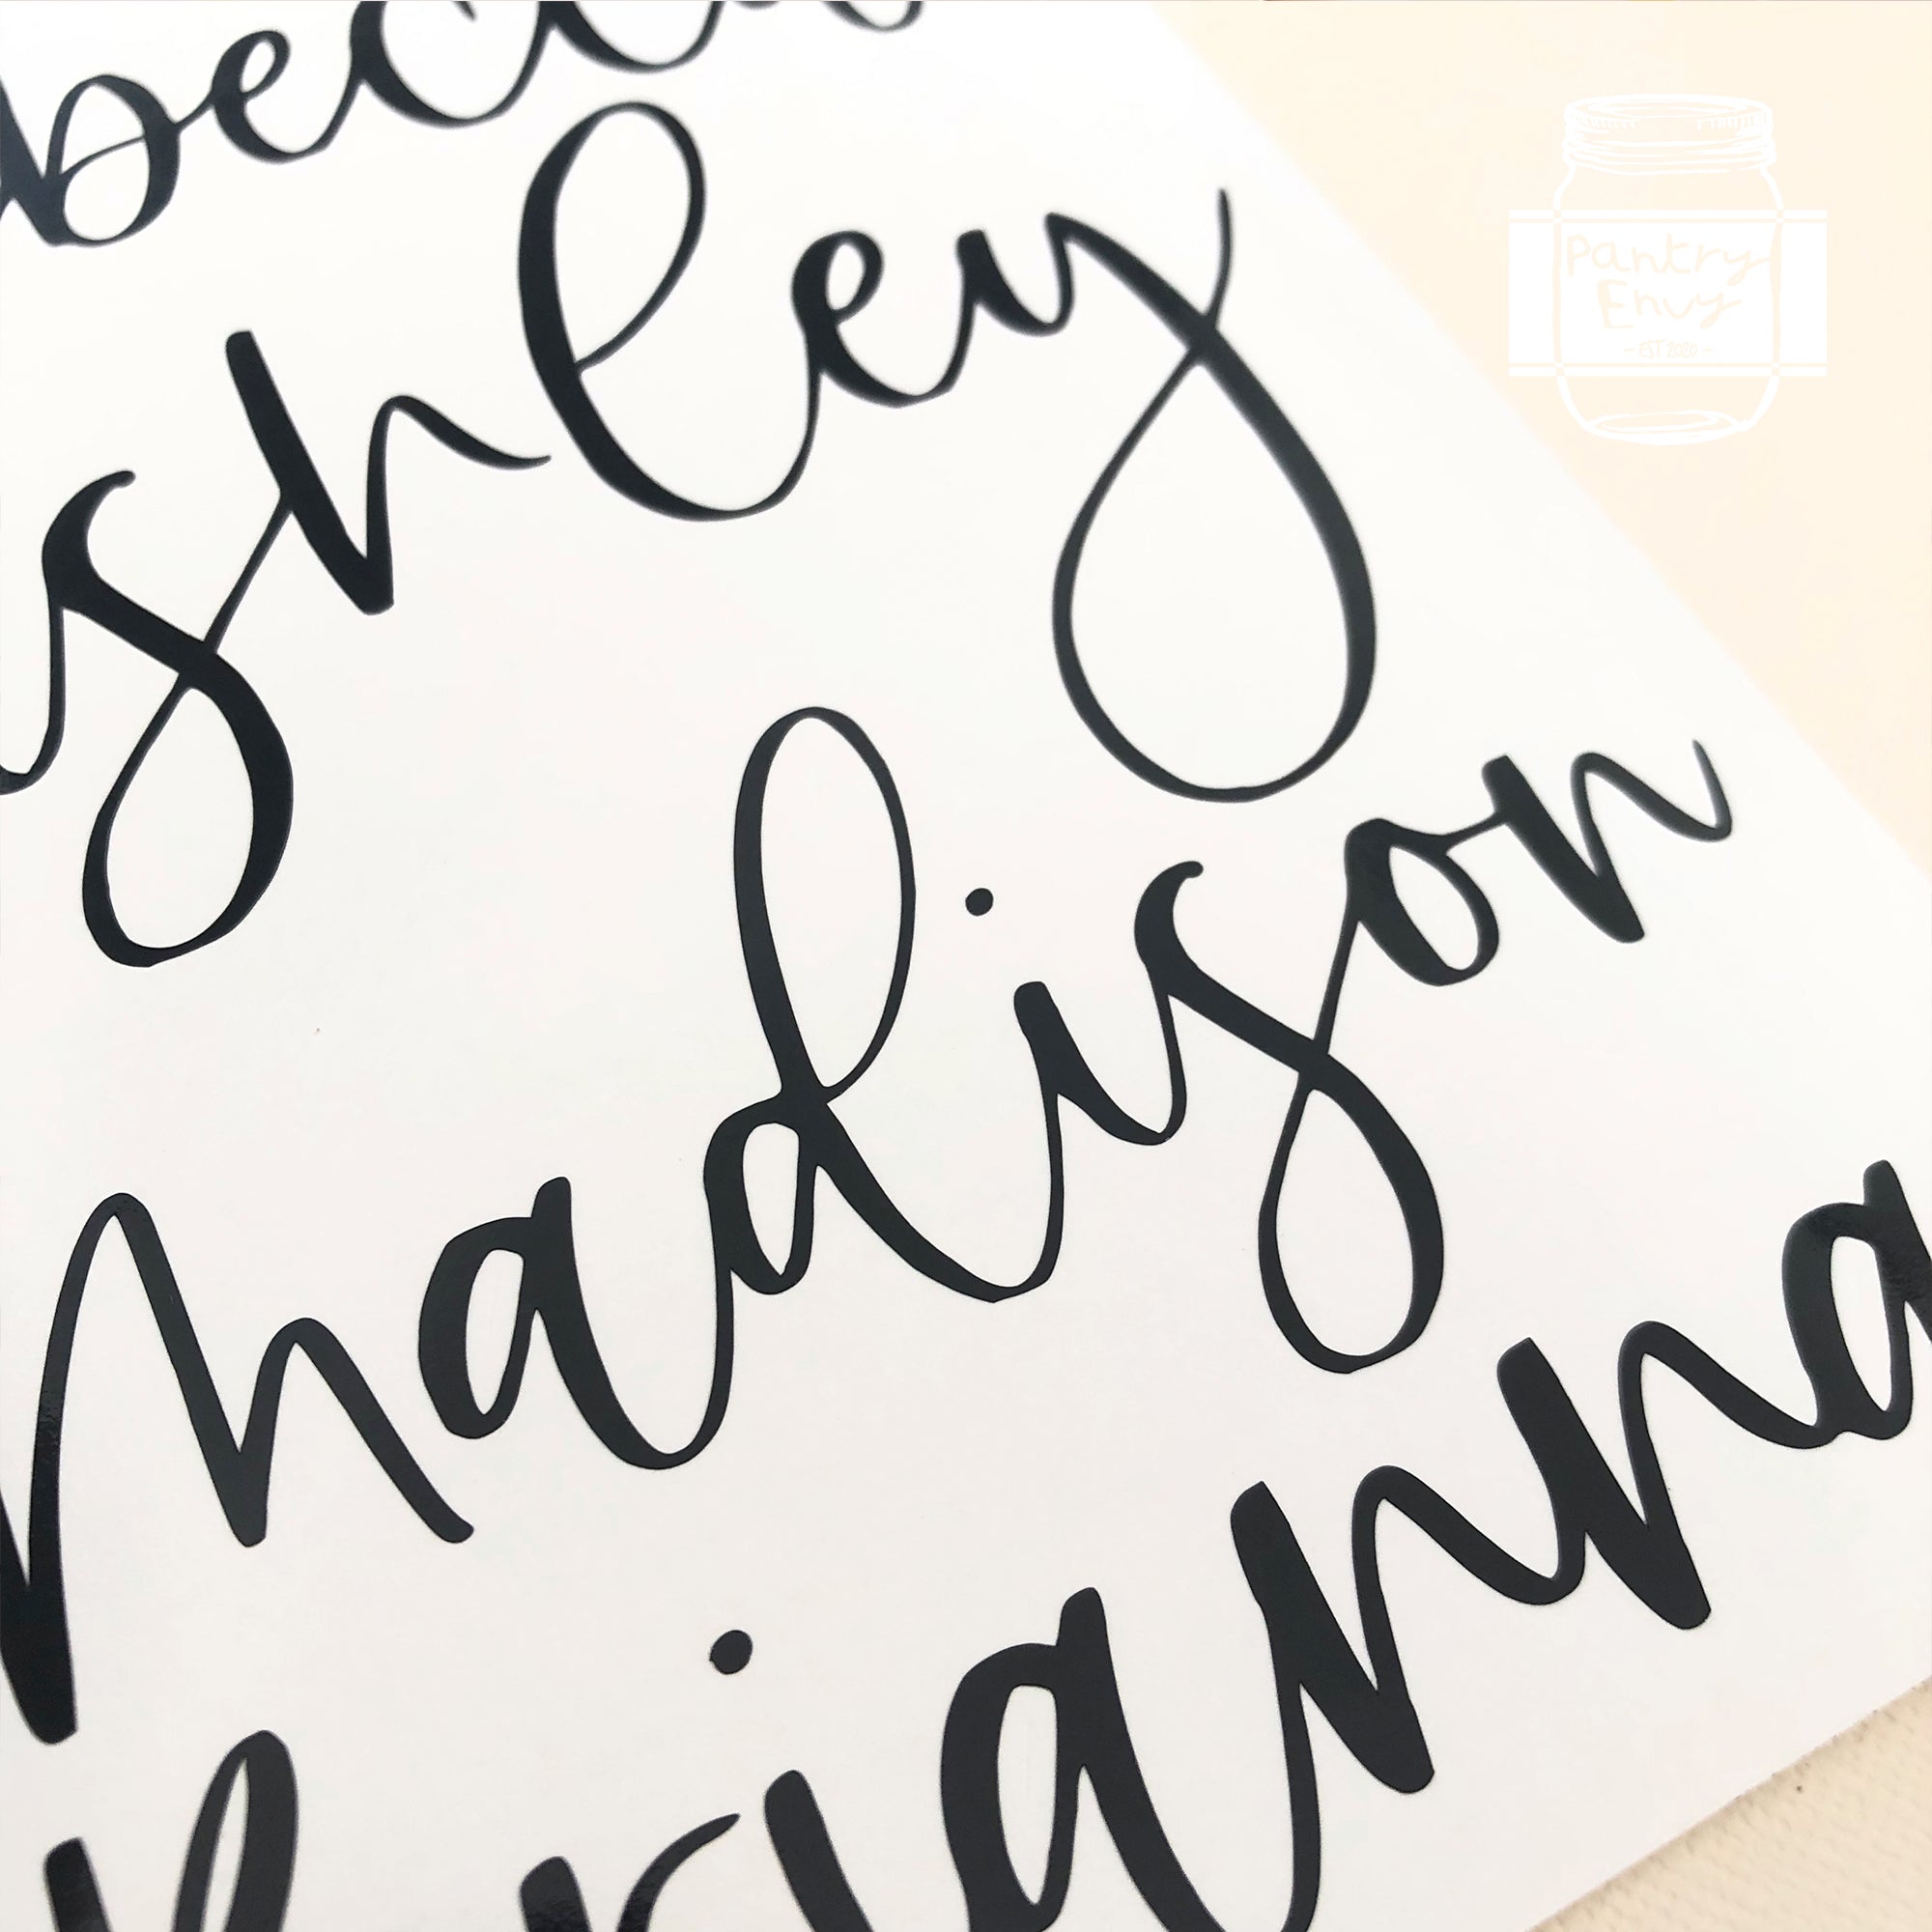 shley
madison
rianna
Pantry
Envy
- EST 2020 -